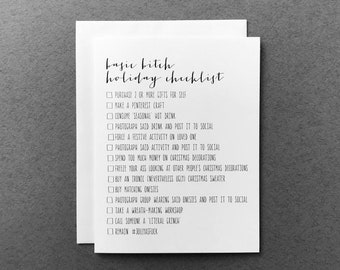 basic bitch
holiday checklist
PURCHASE 2 OR MORE GIFTS FOR SELF
MAKE A PINTEREST CRAFT
CONSUME 'SEASONAL' HOT DRINK
PHOTOGRAPH SAID DRINK AND POST IT TO SOCIAL
FORCE A FESTIVE ACTIVITY ON LOVED-ONE
PHOTOGRAPH SAID ACTIVITY AND POST IT TO SOCIAL
SPEND TOO MUCH MONEY ON CHRISTMAS DECORATIONS
FREEZE YOUR ASS LOOKING AT OTHER PEOPLE'S CHRISTMAS DECORATIONS
BUY AN IRONIC (NEVERTHELESS UGLY) CHRISTMAS SWEATER
BUY MATCHING ONESIES
PHOTOGRAPH GROUP WEARING SAID ONESIES AND POST IT TO SOCIAL
TAKE A WREATH-MAKING WORKSHOP
CALL SOMEONE A 'LITERAL GRINCH'
REMAIN #JOLLYASFUCK